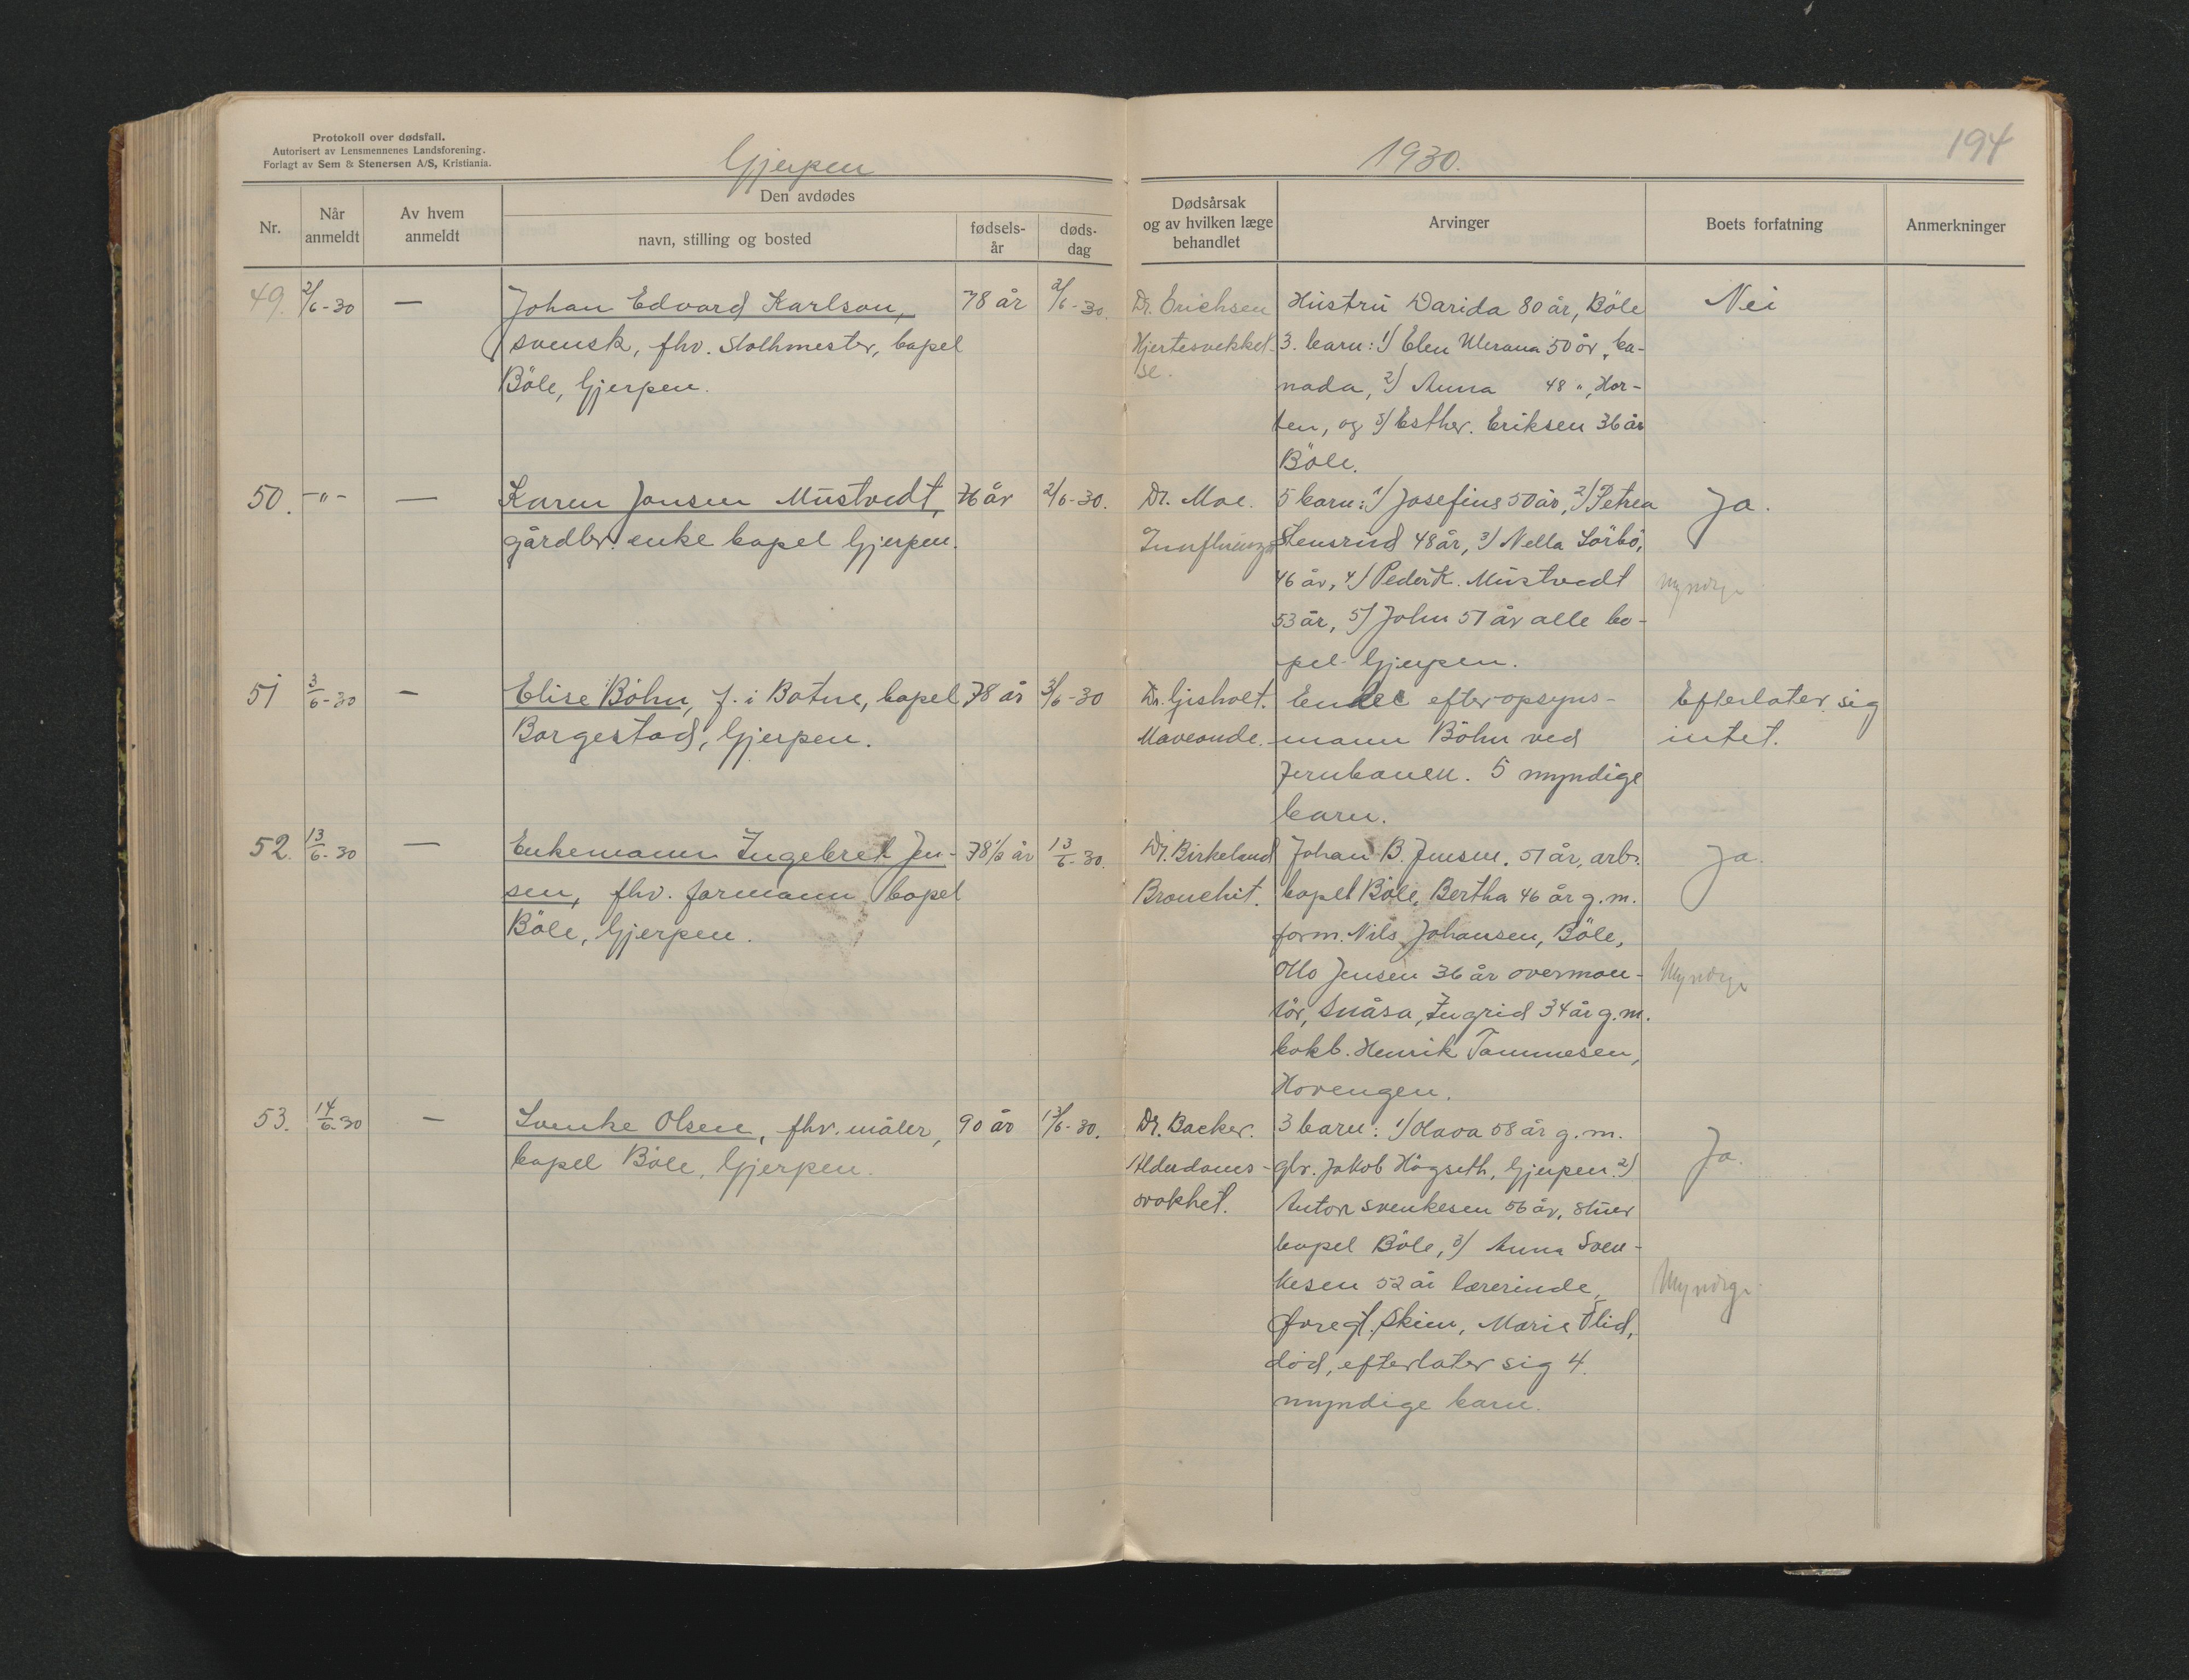 Protokoll over dødsfall.
Autorisert av Lensmennenes Landsforening.
Forlagt av Sem & Stenersen A/S, Kristiania.
Gjerpen
1930.
194
Nr.
Når anmeldt
Av hvem anmeldt
Den avdødes
navn, stilling og bosted
fødsels-år
døds-dag
Dødsårsak og av hvilken læge behandlet
Arvinger
Boets forfatning
Anmerkninger
49. 2/6-30 — Johan Edvard Karlson, 78 år 2/6-30.
svensk, fhv. bopel
Böle, Gjerpen.
Dr. Erichsen
Hjertesvekkel-
se.
Hustru Darida 80 år, Böle
3. barn: 1) Elen 50 år, Ca-
nada, 2) Anna 48 ", Hor-
ten, og 3) Esther. Eriksen 36 år
Böle.
Nei
50. -"- — Karen Jonsen Mustvedt, 76 år 2/6-30.
gårdbr. enke bopel Gjerpen.
Dr. Moe.
5 barn: 1) Josefine 50 år, 2) Petrea
Stensrud 48 år, 3) Nella Sörbö,
46 år, 4) Peder K. Mustvedt
53 år, 5) John 51 år alle bo-
pel Gjerpen.
Ja.
Myndige
51 3/6-30 — Elise Böhn, f. i Botne, bopel 78 år 3/6-30
Borgestad, Gjerpen.
Dr. Gisholt.
Maveonde.
Enke efter opsyns-
mann Böhn ved
Jernbanen. 5 myndige
barn.
Efterlater sig
intet.
52. 13/6-30 — Enkemann Ingebret Jen- 78 1/2 år 13/6-30.
sen, fhv. formann bopel
Böle, Gjerpen.
Dr. Birkeland
Bronchit.
Johan B. Jensen, 51 år, arb.
bopel Böle, Bertha 46 år g.m.
form. Nils Johansen, Böle,
Otto Jensen 36 år overmon-
tör, Snåsa, Ingrid 34 år g.m.
bokb. Henrik Tommesen,
Hovengen.
Ja.
Myndige
53. 14/6-30 — Svenke Olsen, fhv. måler, 90 år 13/6-30.
bopel Böle, Gjerpen.
Dr. Backer.
Alderdoms-
svakhet.
3 barn: 1) Olava 58 år g.m.
gbr. Jakob Högseth, Gjerpen. 2)
Anton Svenkesen 56 år, stuer
bopel Böle, 3) Anna Sven-
kesen 52 år lærerinde,
Skien, Marie Flid,
död, efterlater sig 4.
myndige barn.
Ja.
Myndige